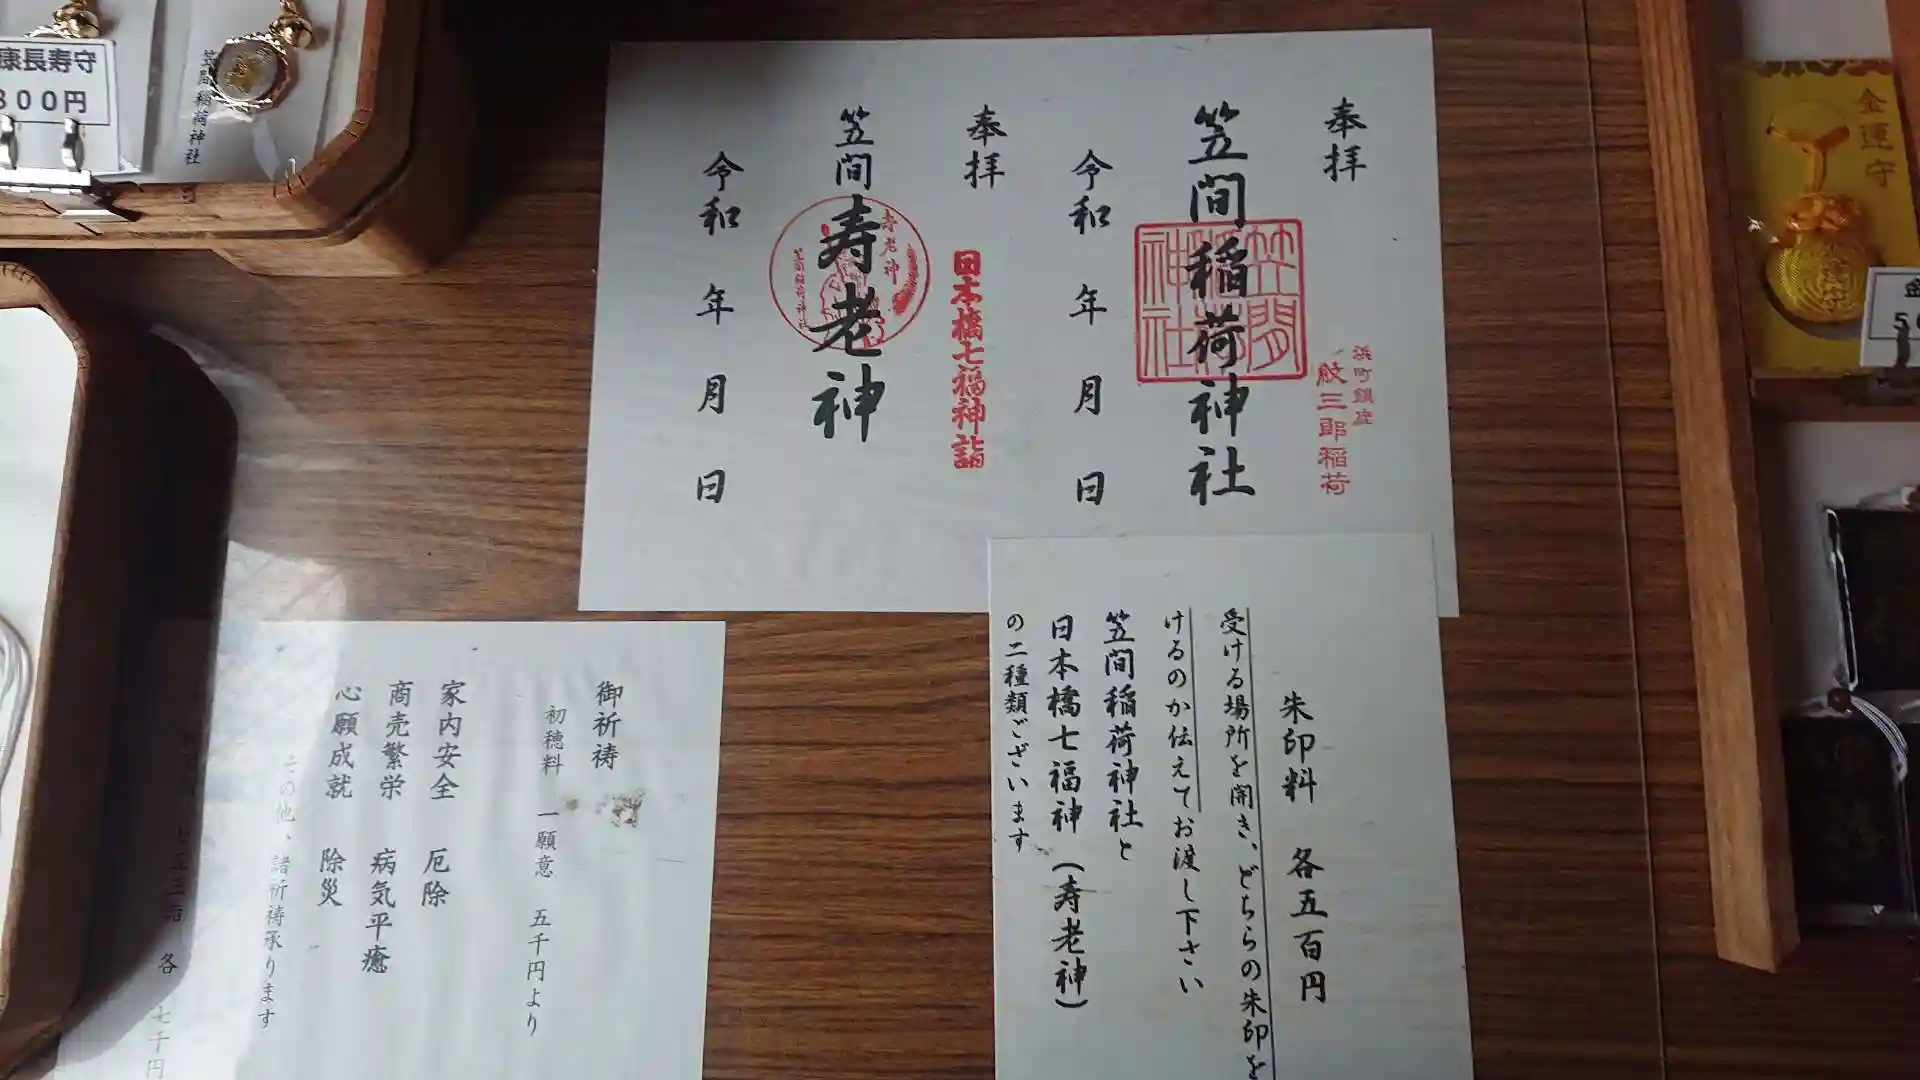 康長寿守
800円
笠間稲荷神社
奉拝
笠間稲荷神社
笠間稲荷神社
浜町鎮座
紋三郎稲荷
令和 年 月 日
奉拝
日本橋七福神詣
笠間寿老神
寿老神
笠間稲荷神社
令和 年 月 日
金運守
金
朱印料 各五百円
受ける場所を開き、どちらの朱印を
けるのか伝えてお渡し下さい
笠間稲荷神社と
日本橋七福神(寿老神)
の二種類ございます
御祈祷
初穂料 一願意 五千円より
家内安全 厄除
商売繁栄 病気平癒
心願成就 除災
その他、諸祈祷承ります
五三 各
七千円